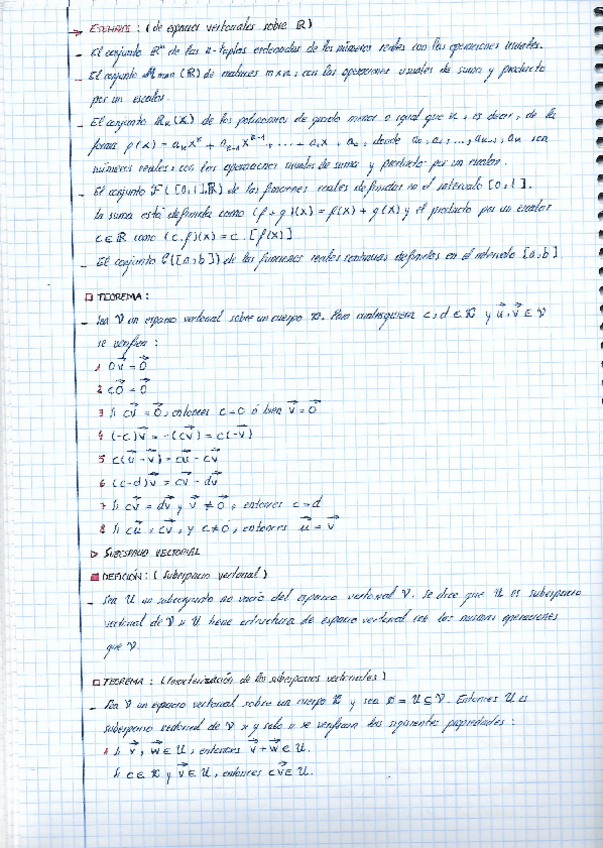 → EJEMPLOS : (de espacios vectoriales sobre ℝ)
- El conjunto ℝⁿ de las n-tuplas ordenadas de los números reales con las operaciones
- El conjunto M mxn (ℝ) de matrices m×n, con las operaciones usuales de suma y producto
por un escalar.
- El conjunto ℝn(X) de los polinomios de grado menor o igual que n, es decir, de la
forma p(x) = anxⁿ + an-1xⁿ⁻¹, ... + a1x + a0, donde a0, a1, ..., an-1, an son
números reales, con las operaciones usuales de suma y producto por un escalar.
- El conjunto F([0,1],ℝ) de las funciones reales definidas en el intervalo [0,1].
la suma está definida como (f+g)(x) = f(x) + g(x) y el producto por un escalar
c∈ℝ como (c.f)(x) = c.[f(x)]
- El conjunto C([a,b]) de las funciones reales continuas definidas en el intervalo [a,b]
TEOREMA :
- Sea V un espacio vectorial sobre un cuerpo K. Para cualesquiera c,d ∈ K y u⃗, v⃗ ∈ V
se verifica :
1 0v⃗ = 0⃗
2 c0⃗ = 0⃗
3 Si cv⃗ = 0⃗, entonces c=0 ó bien v⃗ = 0⃗
4 (-c)v⃗ = -(cv⃗) = c(-v⃗)
5 c(u⃗-v⃗) = cu⃗ - cv⃗
6 (c-d)v⃗ = cv⃗ - dv⃗
7 Si cv⃗ = dv⃗ y v⃗ ≠ 0⃗, entonces c=d
8 Si cu⃗ = cv⃗, y c≠0, entonces u⃗ = v⃗
▷ SUBESPACIO VECTORIAL
DEFICIÓN : (Subespacio vectorial)
- Sea U un subconjunto no vacío del espacio vectorial V. Se dice que U es subespacio
vectorial de V si U tiene estructura de espacio vectorial con las mismas operaciones
que V.
TEOREMA : (caracterización de los subespacios vectoriales)
- Sea V un espacio vectorial sobre un cuerpo K y sea ∅ = U ⊆ V. Entonces U es
subespacio vectorial de V si y solo si se verifican las siguientes propiedades :
1 Si v⃗, w⃗ ∈ U, entonces v⃗ + w⃗ ∈ U.
Si c ∈ K y v⃗ ∈ U, entonces cv⃗ ∈ U.